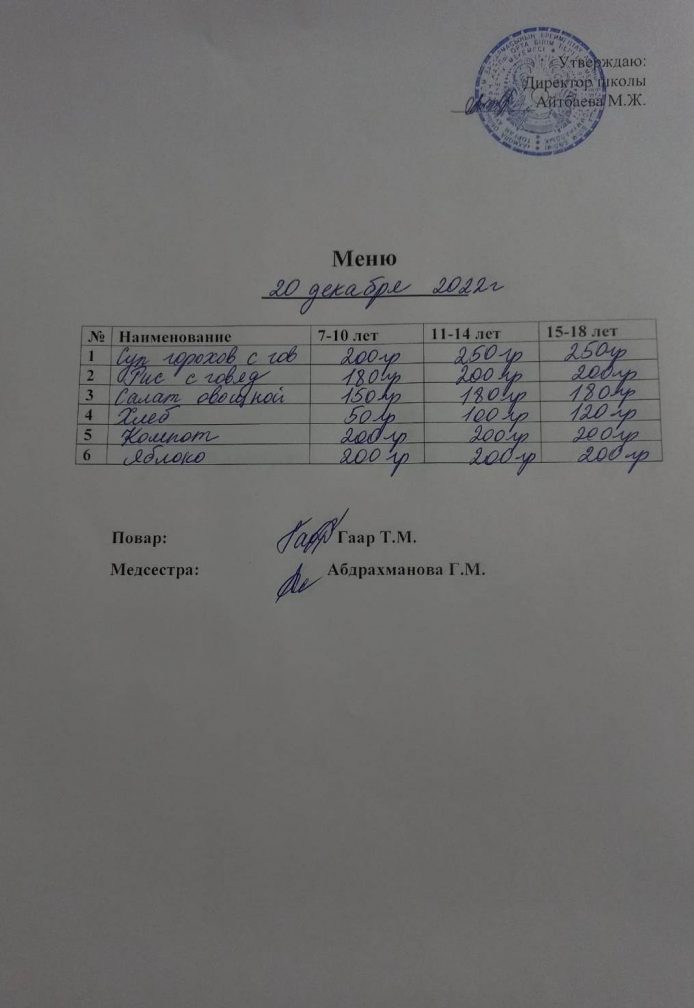 Утверждаю:
Директор школы
Айтбаева М.Ж.
Меню
20 декабря 2022г
№ Наименование 7-10 лет 11-14 лет 15-18 лет
1 Суп горохов с гов 200гр 250гр 250гр
2 Рис с говяд 180гр 200гр 200гр
3 Салат овощной 150гр 180гр 180гр
4 Хлеб 50гр 100гр 120гр
5 Компот 200гр 200гр 200гр
6 Яблоко 200гр 200гр 200гр
Повар: Гаар Т.М.
Медсестра: Абдрахманова Г.М.